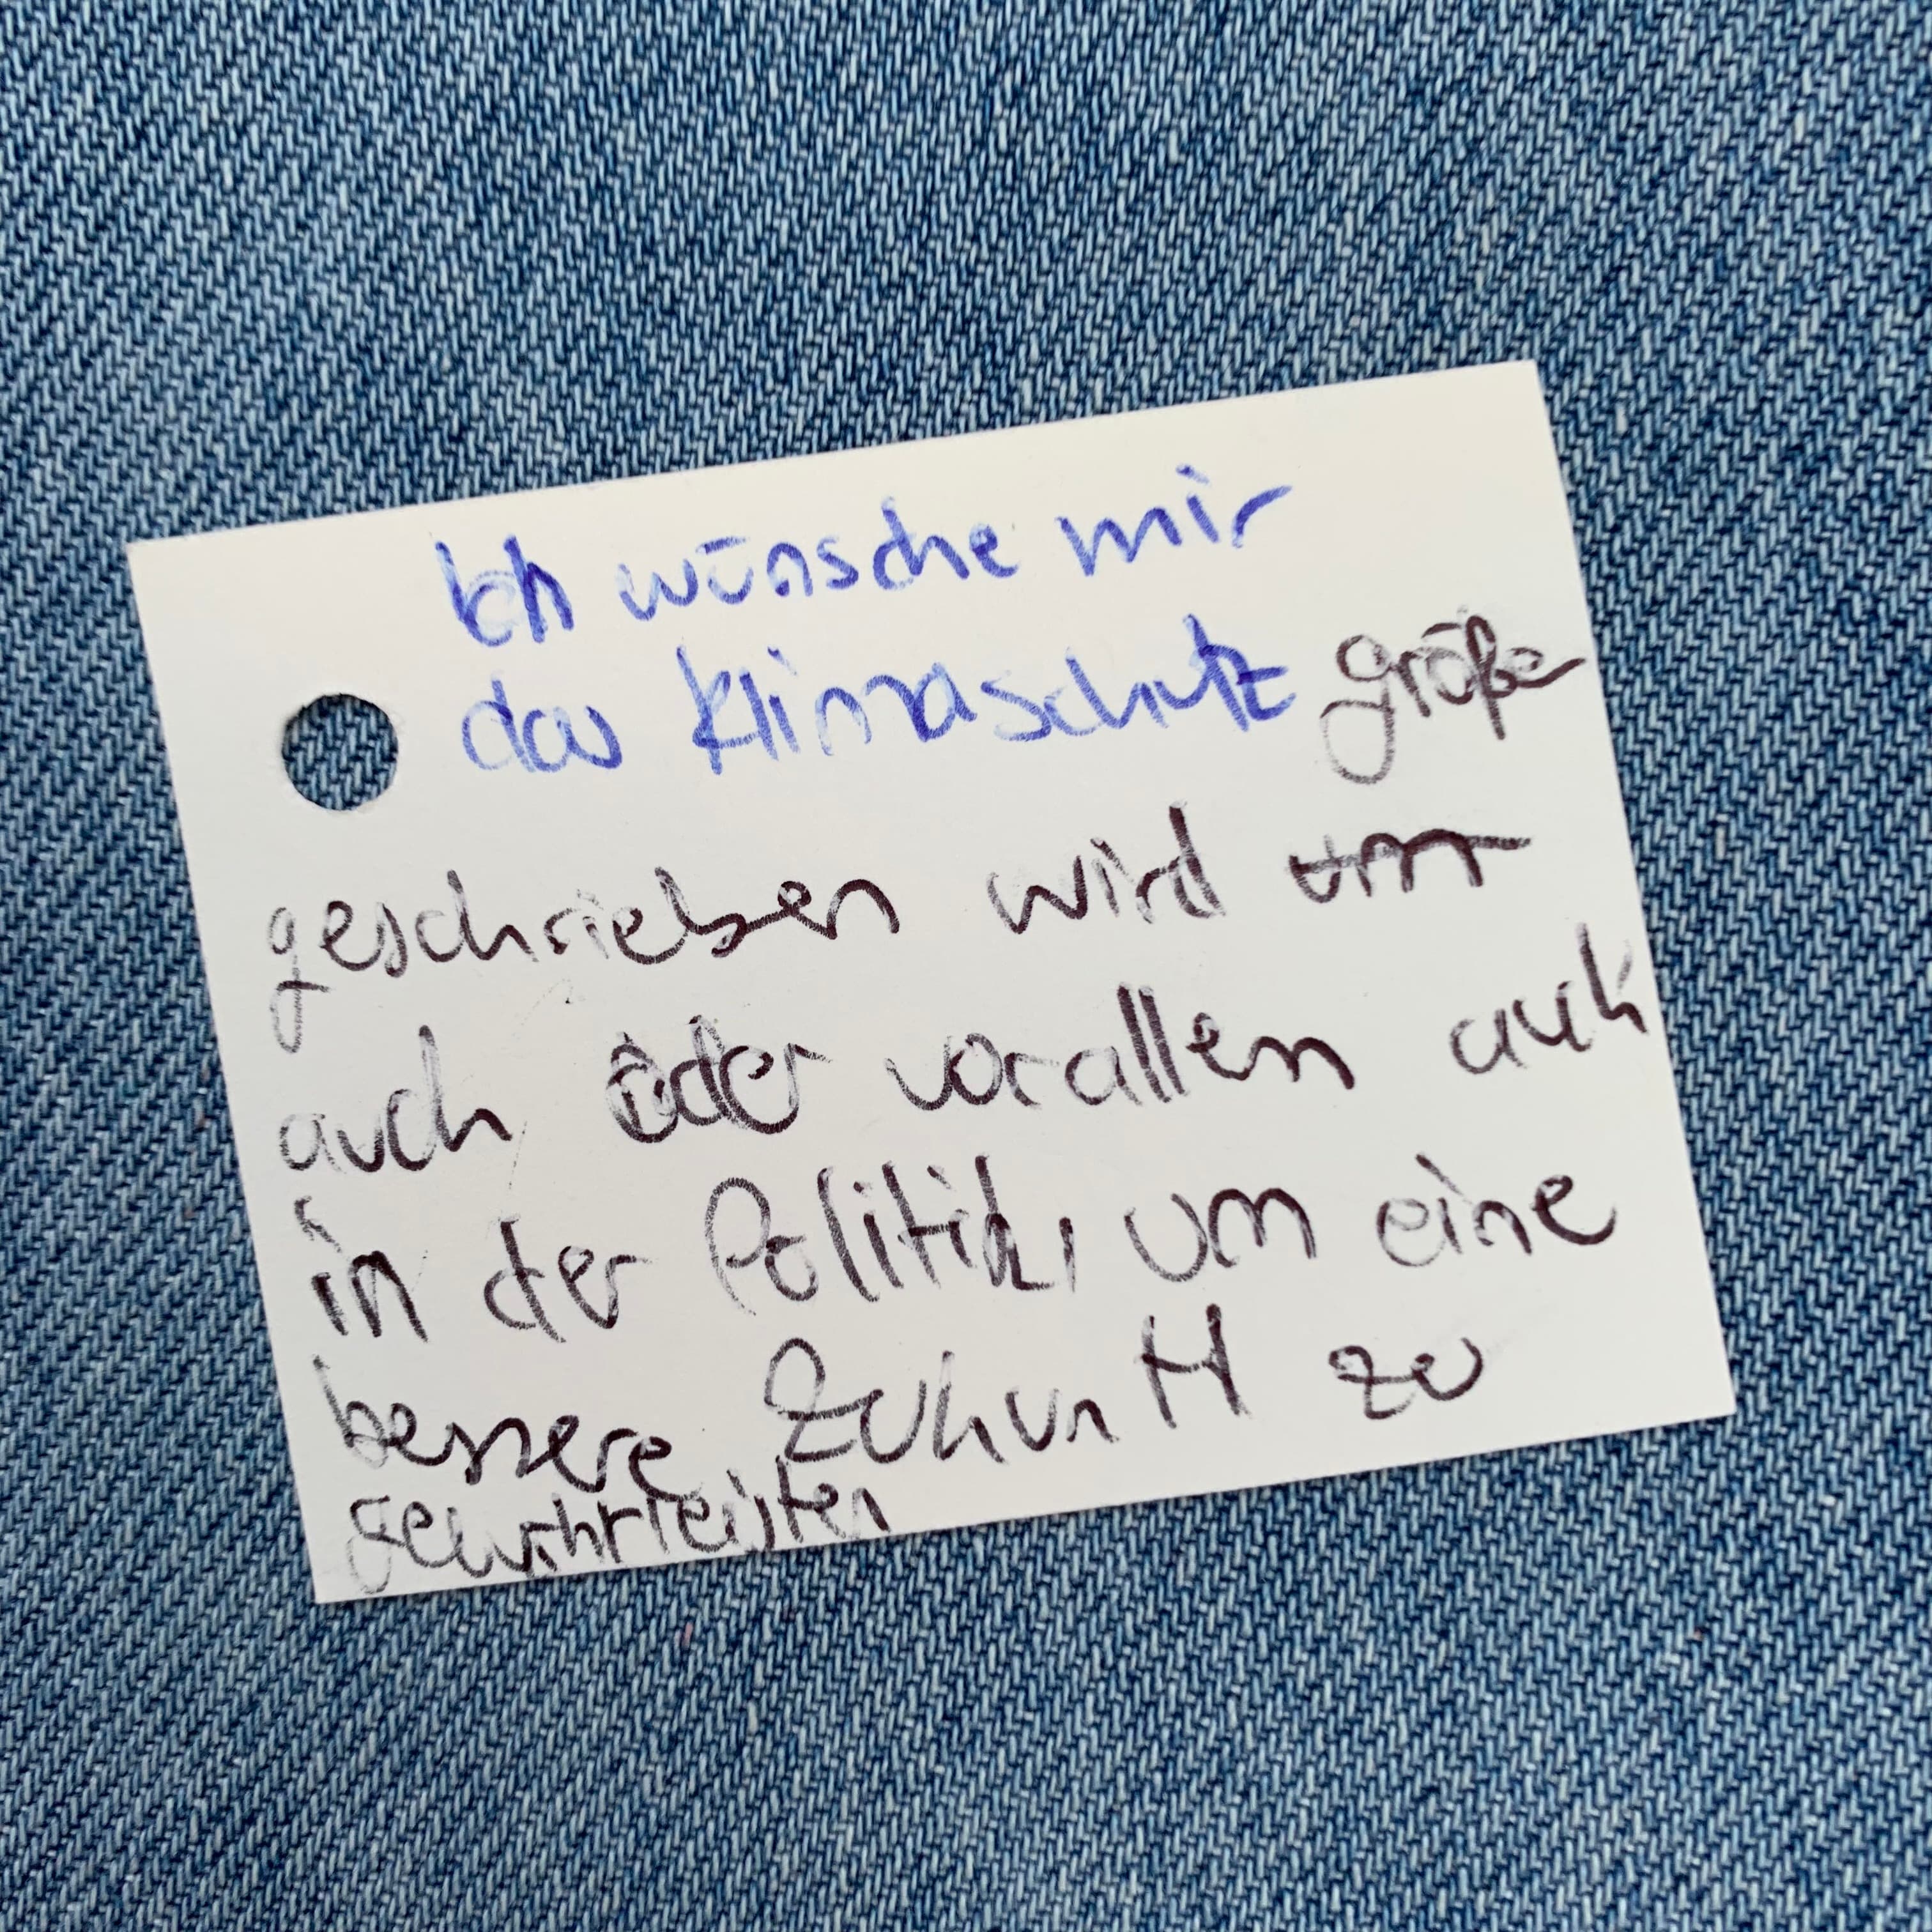 Ich wünsche mir
das Klimaschutz größer
geschrieben wird um
auch oder vorallem auch
in der Politik, um eine
bessere Zukunft zu
gewährleisten